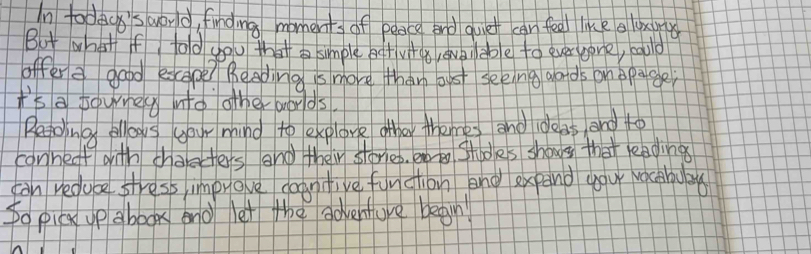 In today's world, finding moments of peace and quiet can feel like a luxury
But what if I told you that a simple activity, available to everyone, could
offer a good escape? Reading is more than just seeing words on a page;
it's a journey into other worlds.
Reading allows your mind to explore other themes and ideas, and to
connect with characters and their stories. Studies shows that reading
can reduce stress, improve cognitive function and expand your vocabulary
So pick up a book and let the adventure begin!